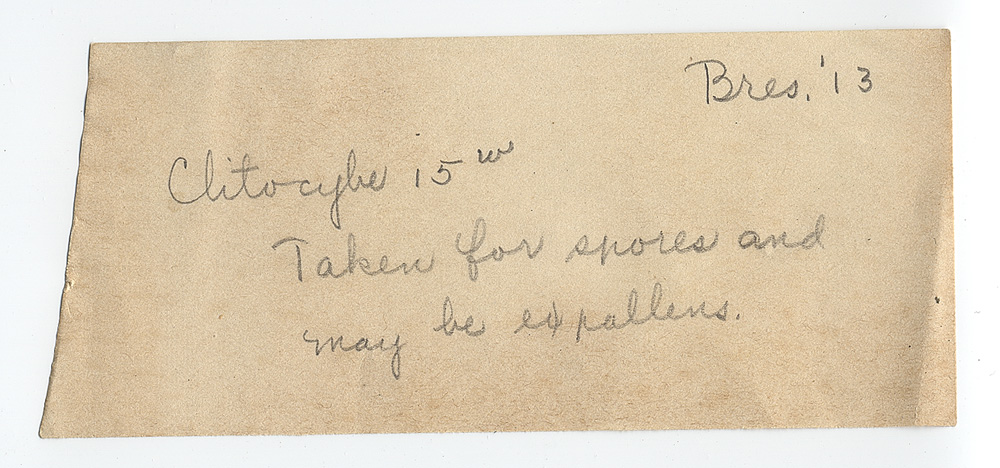 Bres. '13
Clitocybe 15 w
Taken for spores and
may be expallens.